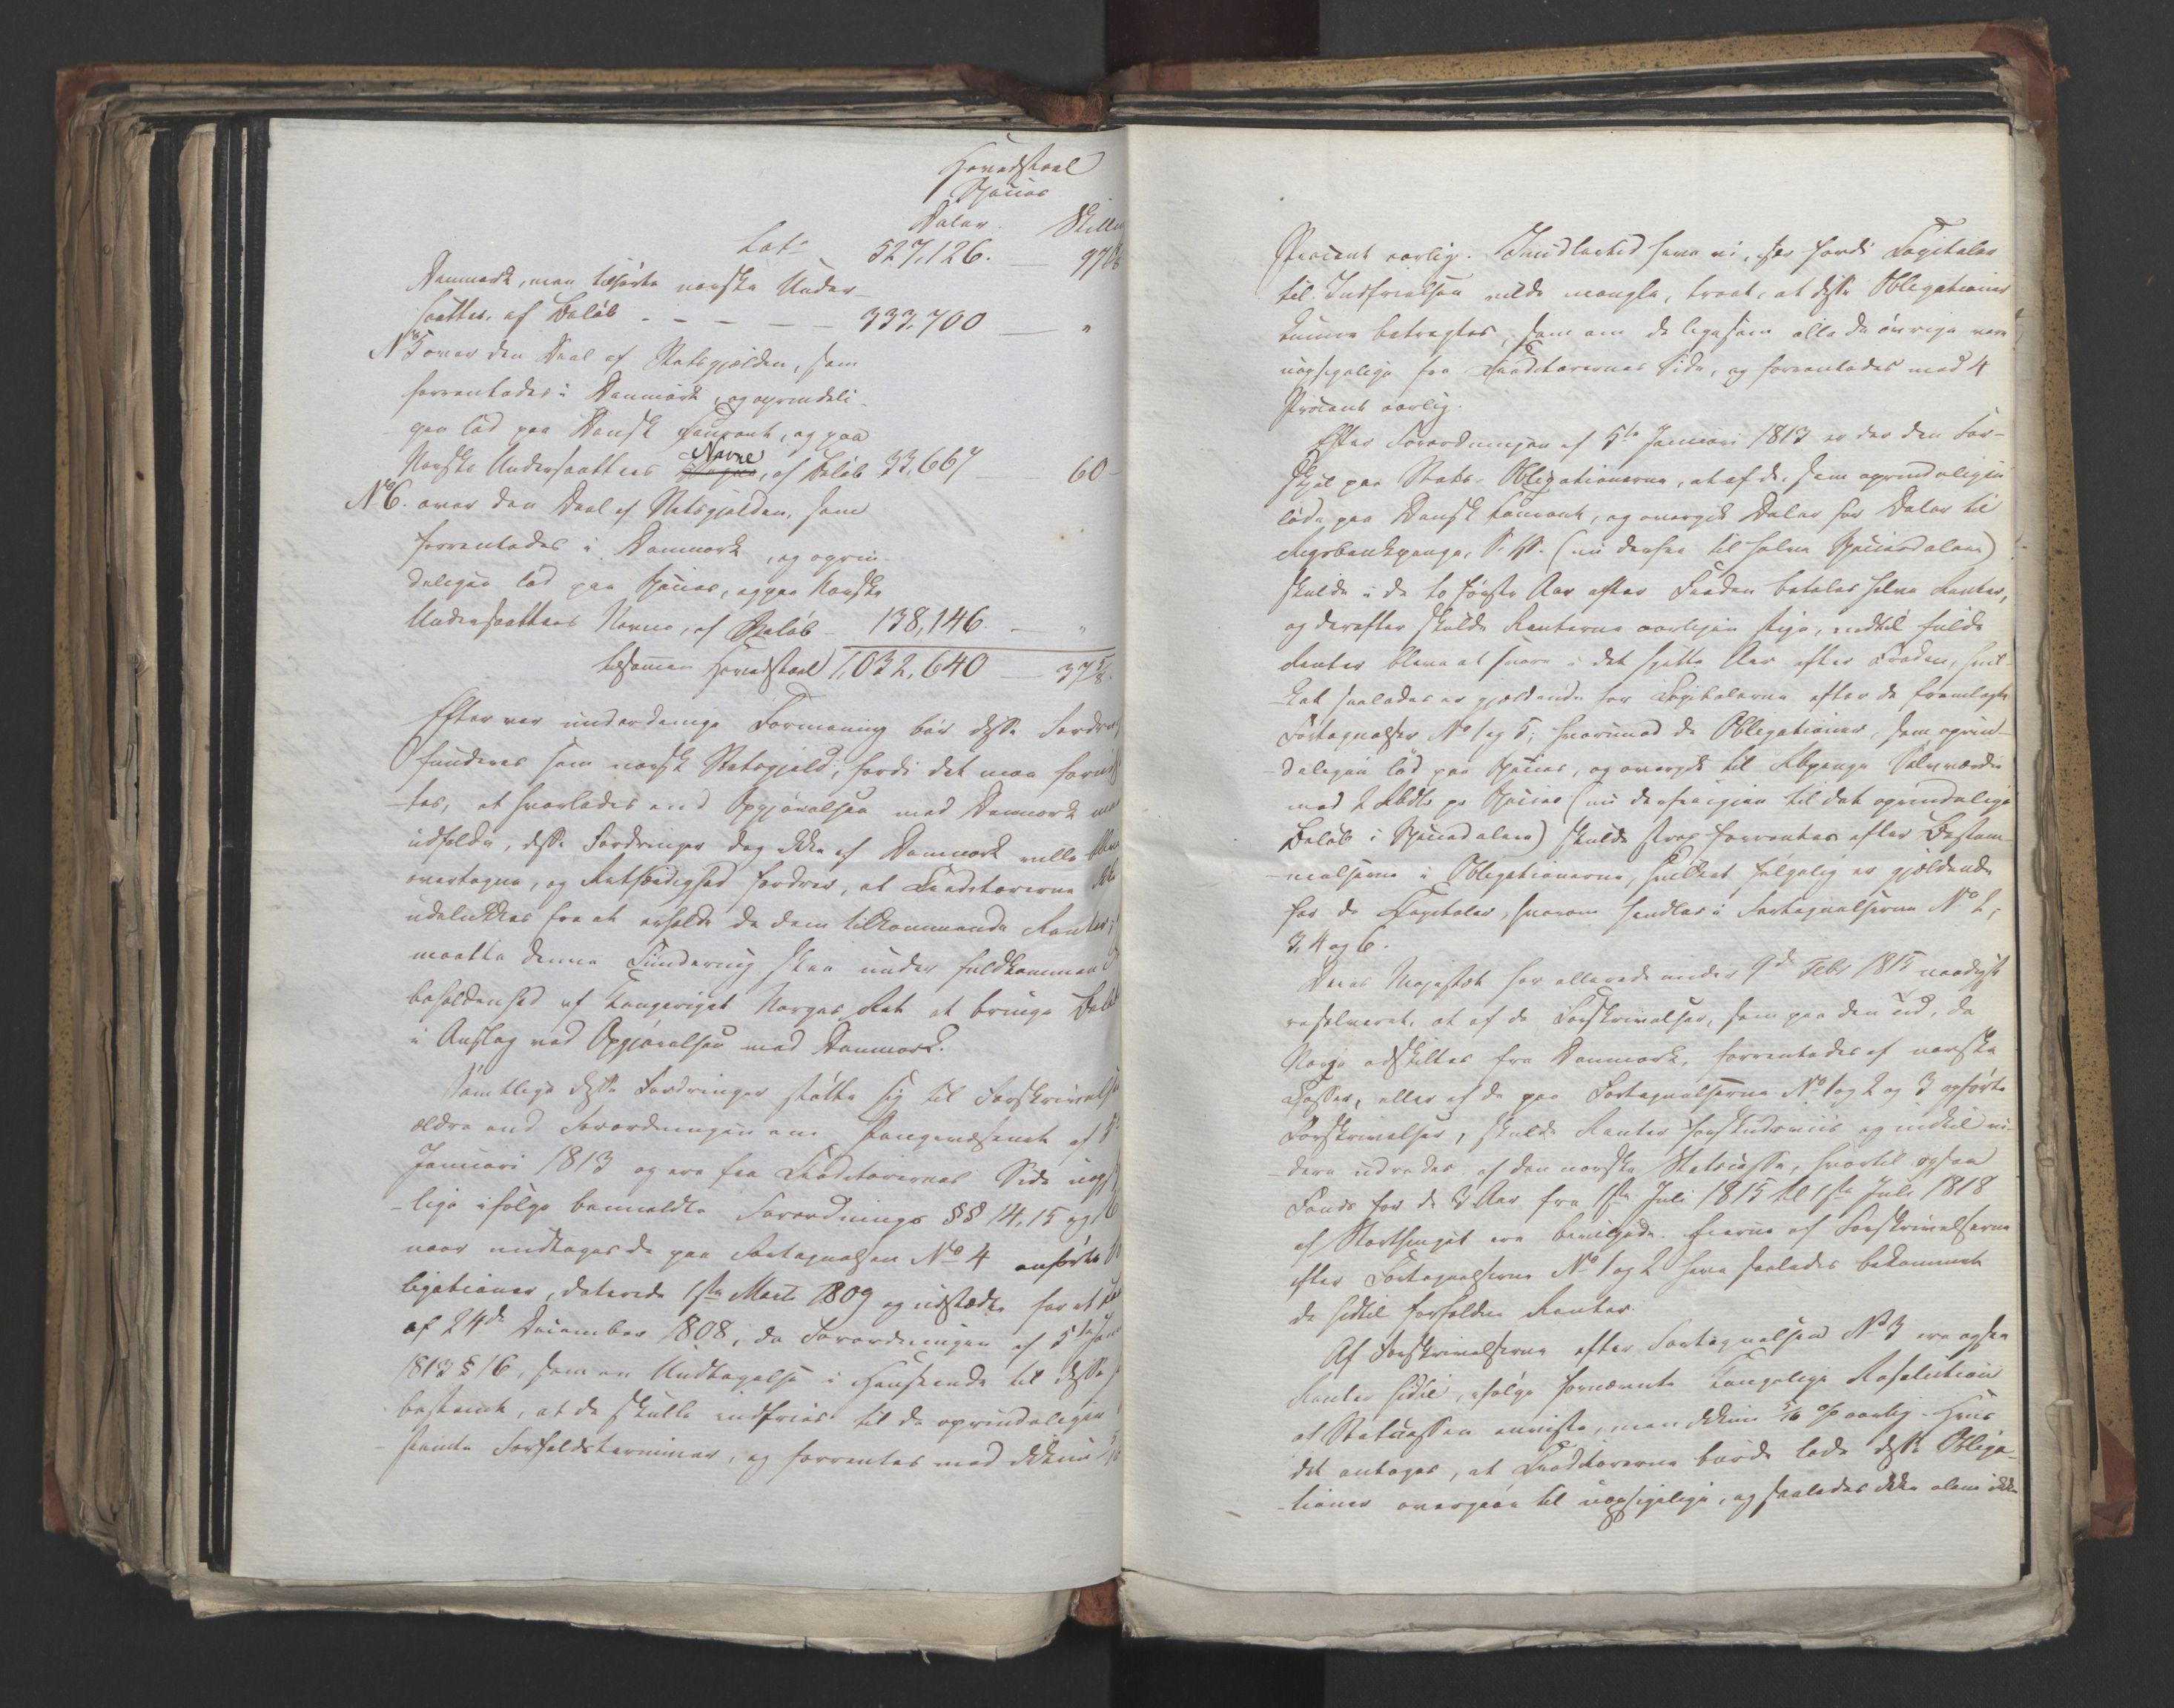 Hovedstoel
Species
Daler. Skilling
Lat. 527,126. — 97⅝
Danmark, men tilhørte norske Under-
saatter, af Beløb - - - - 333,700 — "
No 5 over den Deel af Statsgjelden, som
forrentedes i Danmark, og oprindeli-
gen lød paa Dansk Courant, og paa
Norske Undersaatters Navne, af Beløb 33,667 — 60 -
No 6. over den Deel af Statsgjelden, som
forrentedes i Danmark, og oprin-
deligen lød paa Species, og paa Norske
Undersaatters Navne, af Beløb - 138,146. — "
tilsammen Hovedstoel 1,032,640 — 37⅝.
Efter vor underdanige Formening bør disse Fordringer
funderes som norsk Statsgjeld; fordi det maa forud
-tes, at hvorledes end Opgjørelsen med Danmark maa
udfalde, disse Fordringer dog ikke af Danmark ville blive
overtagne, og Retfærdighed fordrer, at Creditorerne ikke
udelukkes fra at erholde de dem tilkommende Renter;
maatte denne Fundering skee under fuldkommen
beholdenhed af Kongeriget Norges Ret at bringe Beløbet
i Anslag ved Opgjørelsen med Danmark.
Samtlige disse Fordringer støtte sig til Forskrivelser
ældre end Forordningen om Pengevæsenet af 5te
Januari 1813 og ere fra Creditorernes Side uopsi
-lige ifølge bemeldte Forordnings §§ 14, 15 og 16
naar undtages de paa Fortegnelsen No 4 anførte Ob
ligationer, daterede 1ste Marts 1809 og udstædte for et Laan
af 24de December 1808, da Forordningen af 5te Janu
1813 § 16, som en Undtagelse i Henseende til disse
bestemt, at de skulle indfries til de oprindeligen
stemte Forfaldsterminer, og forrentes med ikkun
Procent aarlig. Imidlertid have vi, især fordi Capitaler
til Indfrielsen vilde mangle, troet, at disse Obligationer
kunne betragtes, som om de ligesom alle de øvrige vare
uopsigelige fra Creditorernes Side, og forrentedes med 4
Procent aarlig.
Efter Forordningen af 5te Januari 1813 er der den For-
skjel paa Stats-Obligationerne, at af de, som oprindeligen
løde paa Dansk Courant, og overgik Daler for Daler til
Rigsbankpenge, S. V. (nu derfra til halve Speciesdalere)
skulde i de to første Aar efter Freden betales halve Renter,
og derefter skulde Renterne aarligen stige, indtil fulde
Renter bleve at svare i det sjette Aar efter Freden, hvil-
-ket saaledes er gjeldende for Capitalerne efter de fremlagte
Fortegnelser No 1 og 5; hvorimod de Obligationer, som oprin-
-deligen lød paa Species, og overgik til Rbpenge Sølvværdie
med 2 Rbdlr pr Species (nu derfra igjen til det oprindelige
Beløb i Speciedalere) skulde strax forrentes efter Bestem-
-melserne i Obligationerne, hvilket følgelig er gjældende
for de Capitaler, hvorom handles i Fortegnelserne No 2,
3, 4 og 6.
Deres Majestæt har allerede under 9de Febr 1815 naadigst
resolveret, at af de Forskrivelser, som paa den Tid, da
Norge adskiltes fra Danmark, forrentedes af norske
Casser, eller af de paa Fortegnelserne No 1 og 2 og 3 opførte
Forskrivelser, skulde Renter forskudsviis og indtil vi-
dere udredes af den norske Statscasse, hvortil ogsaa
Fonds for de 3 Aar fra 1ste Juli 1815 til 1ste Juli 1818
af Storthinget ere bevilgede. Eierne af Forskrivelserne
efter Fortegnelserne No 1 og 2 have saaledes bekommet
de hidtil forfaldne Renter.
Af Forskrivelserne efter Fortegnelsen No 3 ere ogsaa
Renter hidtil, ifølge fornævnte Kongelige Resolution
af Statscassen anviste, men ikkun 5/16 % aarlig. Hvis
det antages, at Creditorerne burde lade disse Obliga-
-tioner overgaae til uopsigelige, og saaledes ikke alene ikke